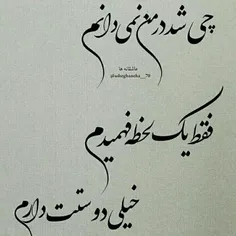 چی شد در من نمی دانم
عاشقانه ها
فقط یک لحظه فهمیدم
خیلی دوستت دارم